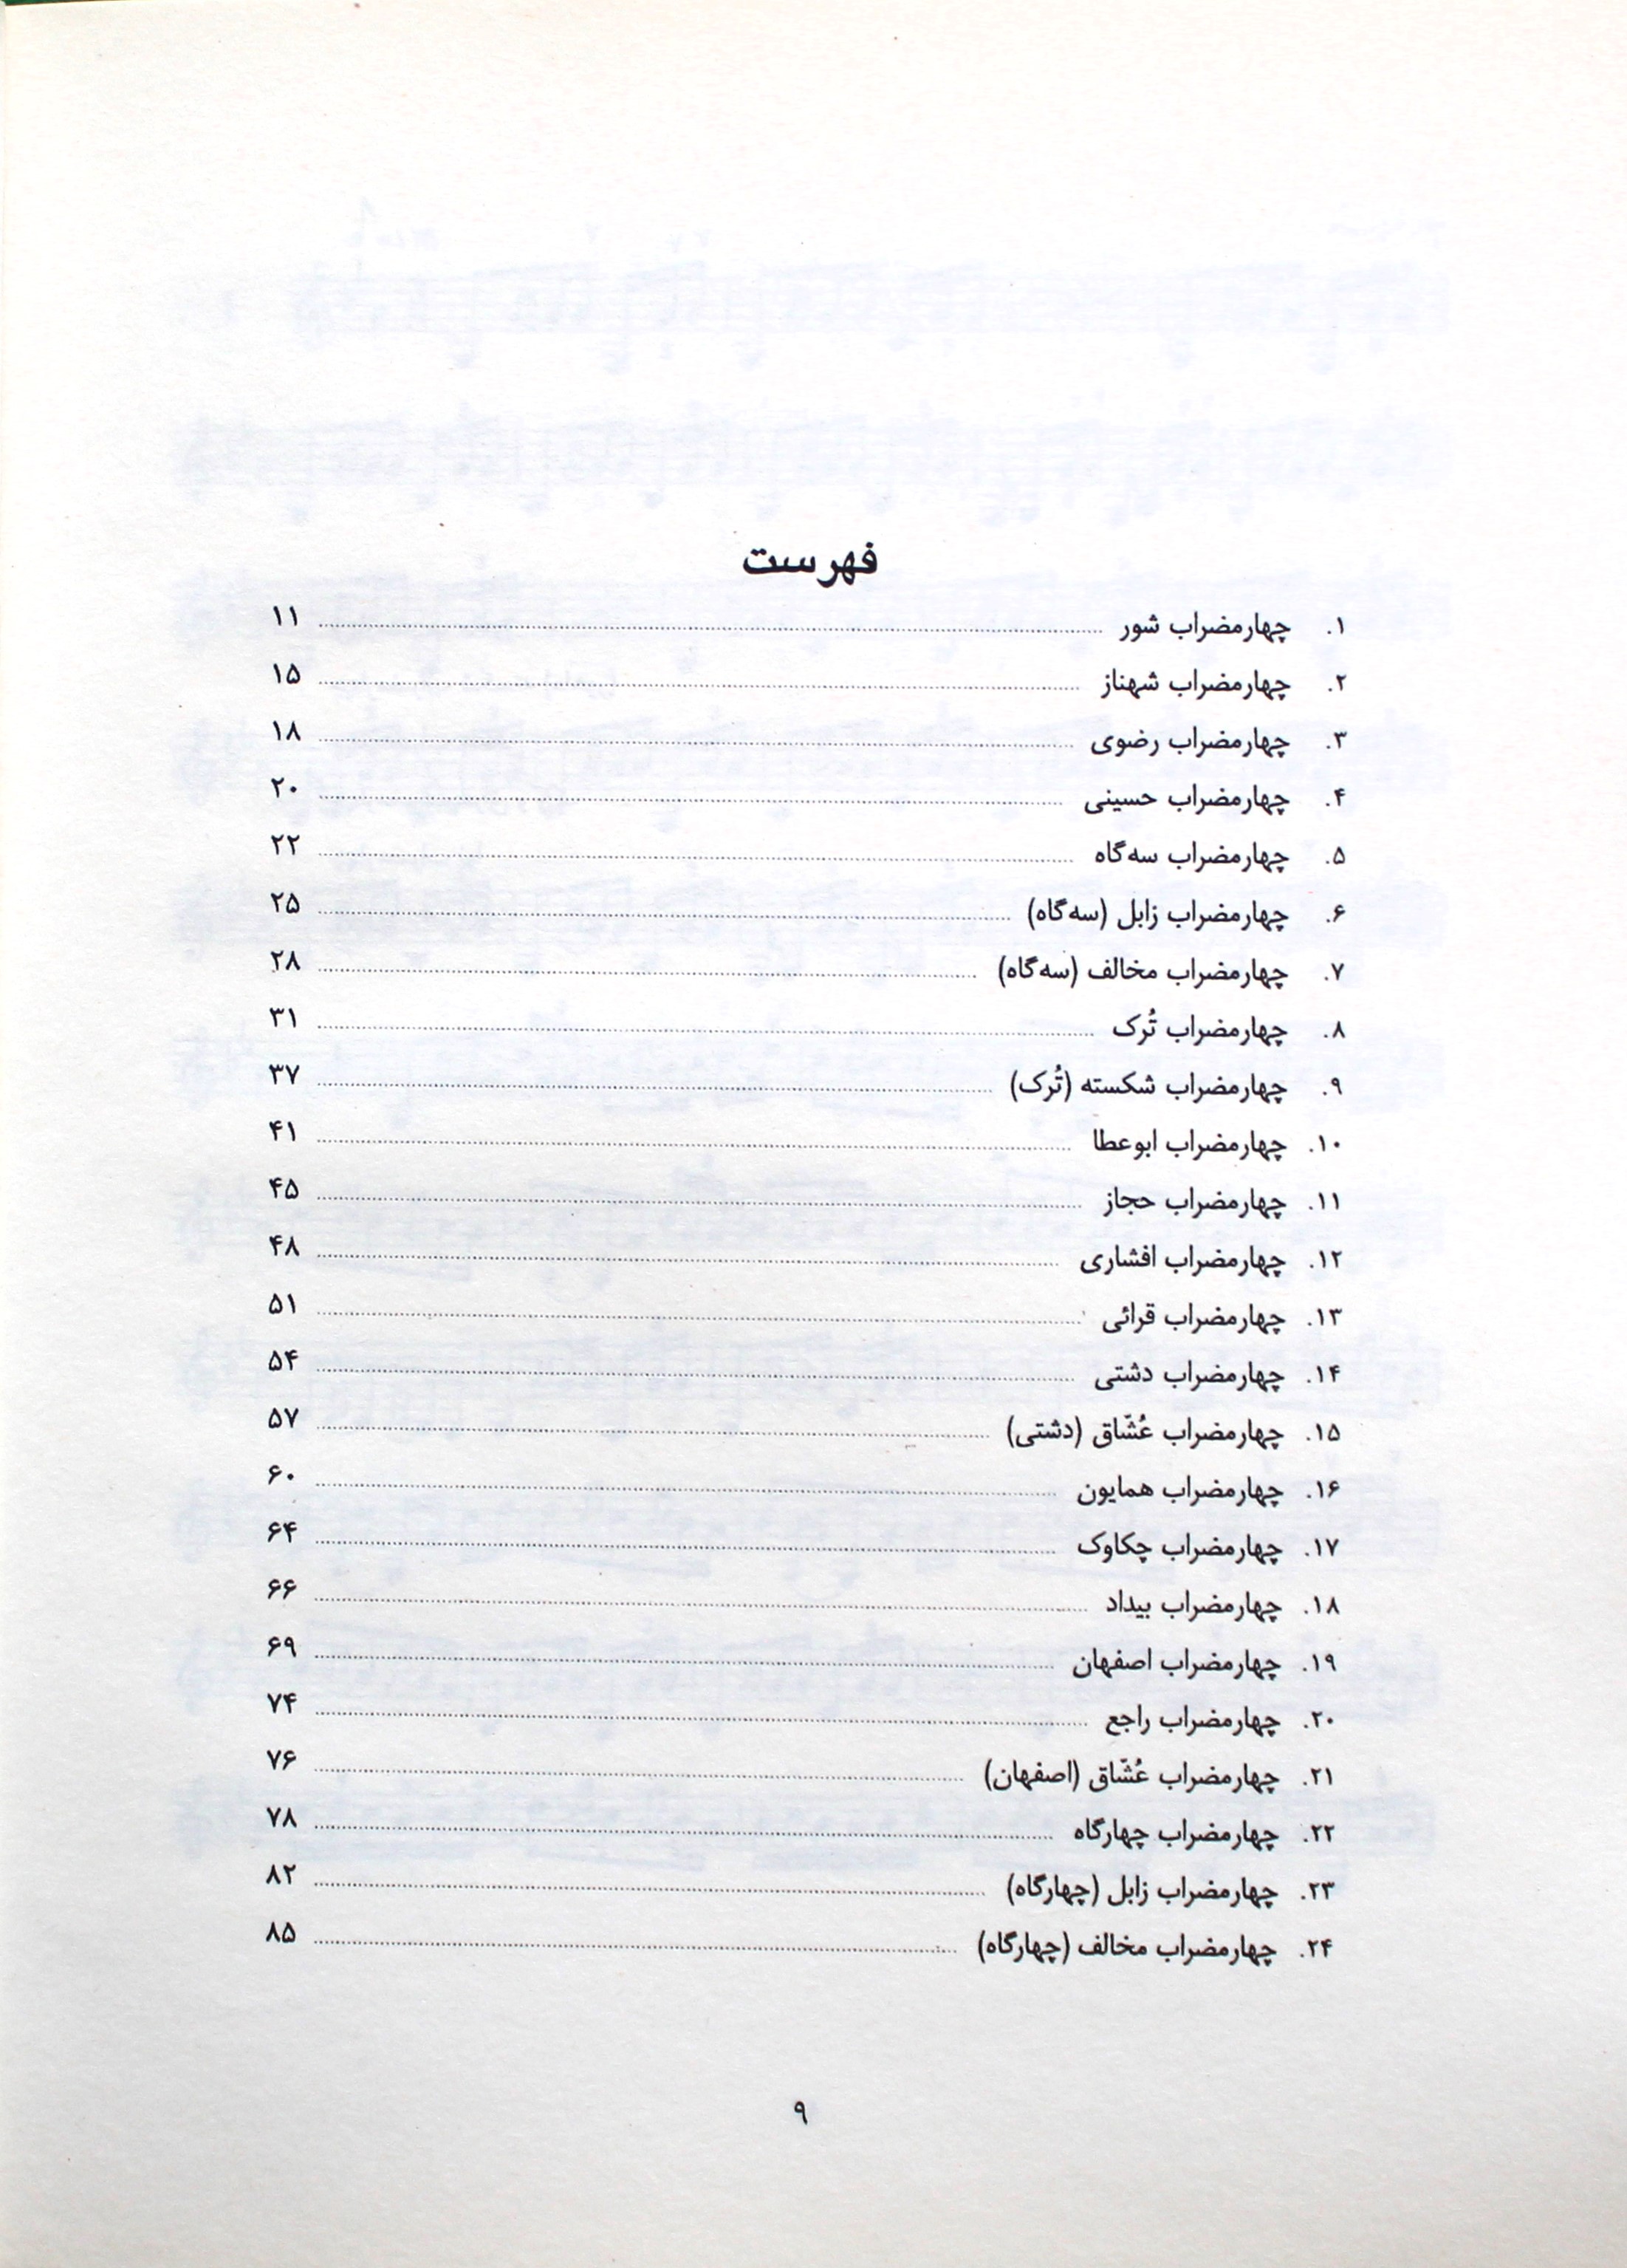 فهرست
۱. چهارمضراب شور ۱۱
۲. چهارمضراب شهناز ۱۵
۳. چهارمضراب رضوی ۱۸
۴. چهارمضراب حسینی ۲۰
۵. چهارمضراب سه‌گاه ۲۲
۶. چهارمضراب زابل (سه‌گاه) ۲۵
۷. چهارمضراب مخالف (سه‌گاه) ۲۸
۸. چهارمضراب تُرک ۳۱
۹. چهارمضراب شکسته (تُرک) ۳۷
۱۰. چهارمضراب ابوعطا ۴۱
۱۱. چهارمضراب حجاز ۴۵
۱۲. چهارمضراب افشاری ۴۸
۱۳. چهارمضراب قرائی ۵۱
۱۴. چهارمضراب دشتی ۵۴
۱۵. چهارمضراب عُشّاق (دشتی) ۵۷
۱۶. چهارمضراب همایون ۶۰
۱۷. چهارمضراب چکاوک ۶۴
۱۸. چهارمضراب بیداد ۶۶
۱۹. چهارمضراب اصفهان ۶۹
۲۰. چهارمضراب راجع ۷۴
۲۱. چهارمضراب عُشّاق (اصفهان) ۷۶
۲۲. چهارمضراب چهارگاه ۷۸
۲۳. چهارمضراب زابل (چهارگاه) ۸۲
۲۴. چهارمضراب مخالف (چهارگاه) ۸۵
۹